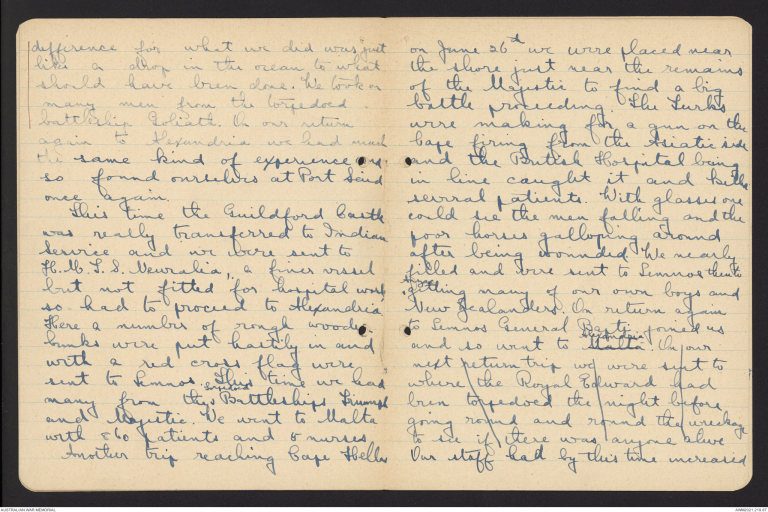 difference for what we did was just
like a drop in the ocean to what
should have been done. We took on
many men from the torpedoed
battleship Goliath. On our return
again to Alexandria we had much
the same kind of experience
so found ourselves at Port Said
once again.
This time the Guildford Castle
was really transferred to Indian
Service and we were sent to
H.M.T.S. Neuralia, a finer vessel
but not fitted for hospital work
so had to proceed to Alexandria.
Here a number of rough wooden
bunks were put hastily in and
with a red cross flag were
sent to Lemnos. This time we had
many from the Battleships Triumph
and Majestic. We went to Malta
with 860 patients and 8 nurses
Another trip reaching Cape Helles
on June 26th we were placed near
the shore just near the remains
of the Majestic to find a big
battle proceeding. The Turks
were making for a gun on the
Cape firing from the Asiatic side
and the British Hospital being
in line caught it and killed
several patients. With glasses one
could see the men falling and the
poor horses galloping around
after being wounded. We nearly
filled and were sent to Lemnos then to
getting many of our own boys and
New Zealanders. On return again
to Lemnos General joined us
Alexandria
and so went to Malta. On our
next return trip we were sent to
where the Royal Edward had
been torpedoed the night before
going round and round the wreckage
to see if there was anyone alive
Our staff had by this time increased
AUSTRALIAN WAR MEMORIAL